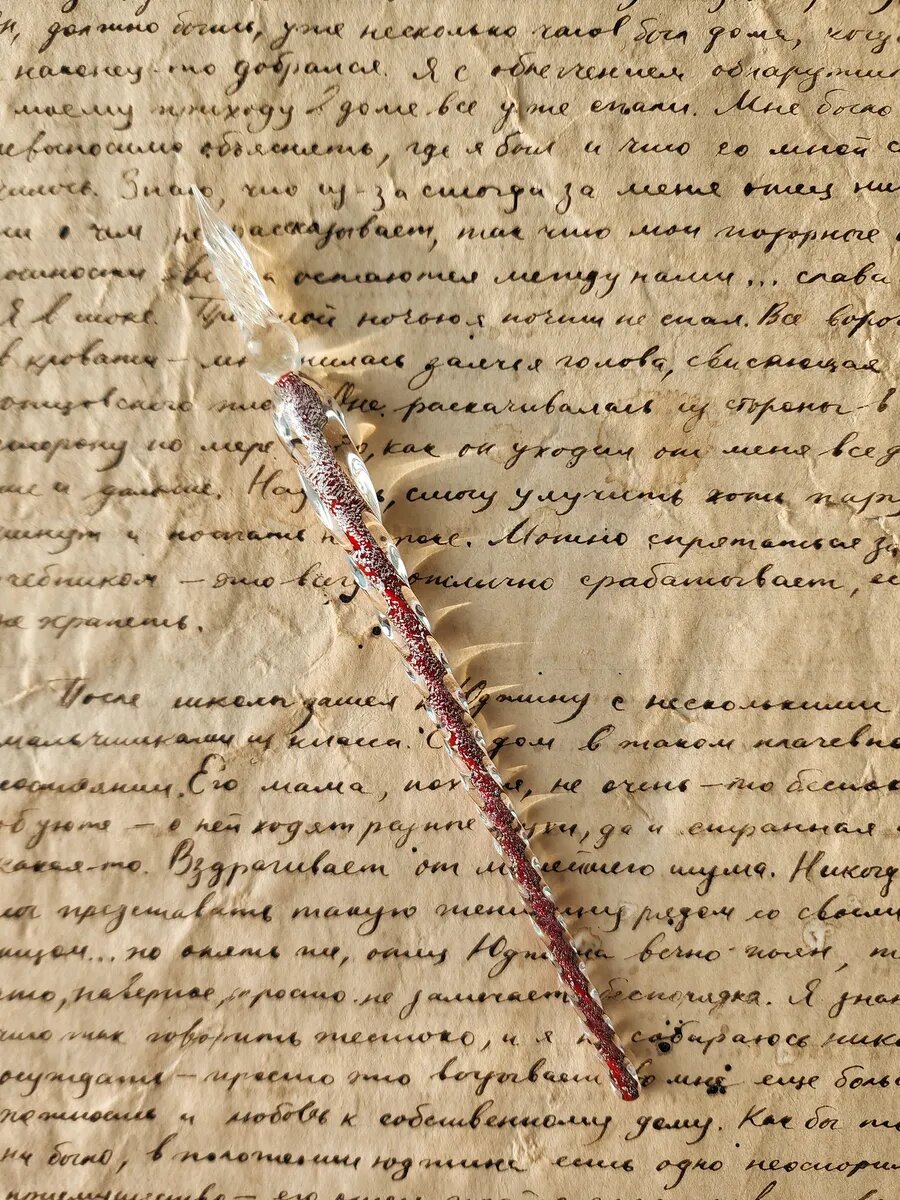 должно быть, уже несколько часов был дома, когда
наконец-то добрался. Я с облегчением обнаружил
моему приходу в доме все уже спали. Мне было
невыносимо объяснять, где я был и что со мной с
Знаю, что из-за смогда за меня отец ни
ни о чём не рассказывает, так что мои позорные
остаются между нами... слава
Я в шоке. ночью я почти не спал. Всё
в кровати — мн лась заячья голова, свисающая
отцовского Она раскачивалась из стороны в
сторону по мере , как он уходил от меня всё д
ше и дальше. , смогу улучить хоть пару
минут и поспать Можно спрятаться за
учебником — это отлично срабатывает, ес
не храпеть.
После школы зашел к Юджину с несколькими
мальчишками из класса. дом в таком плачевно
состоянии. Его мама, , не очень-то беспо
об уюте — о ней ходят разные , да и странная
какая-то. Вздрагивает от малейшего шума. Никогд
мог представить такую женщину рядом со своим
отцом... но опять же, отец Юджина вечно пьян, т
что, наверное, просто не замечает беспорядка. Я знаю
что так говорить жестоко, и я н собираюсь нико
осуждать — просто это вызывает во мне еще боль
нежность и любовь к собственному дому. Как бы то
ни было, в положении Юджина есть одно неоспорим
преимущество — его отец